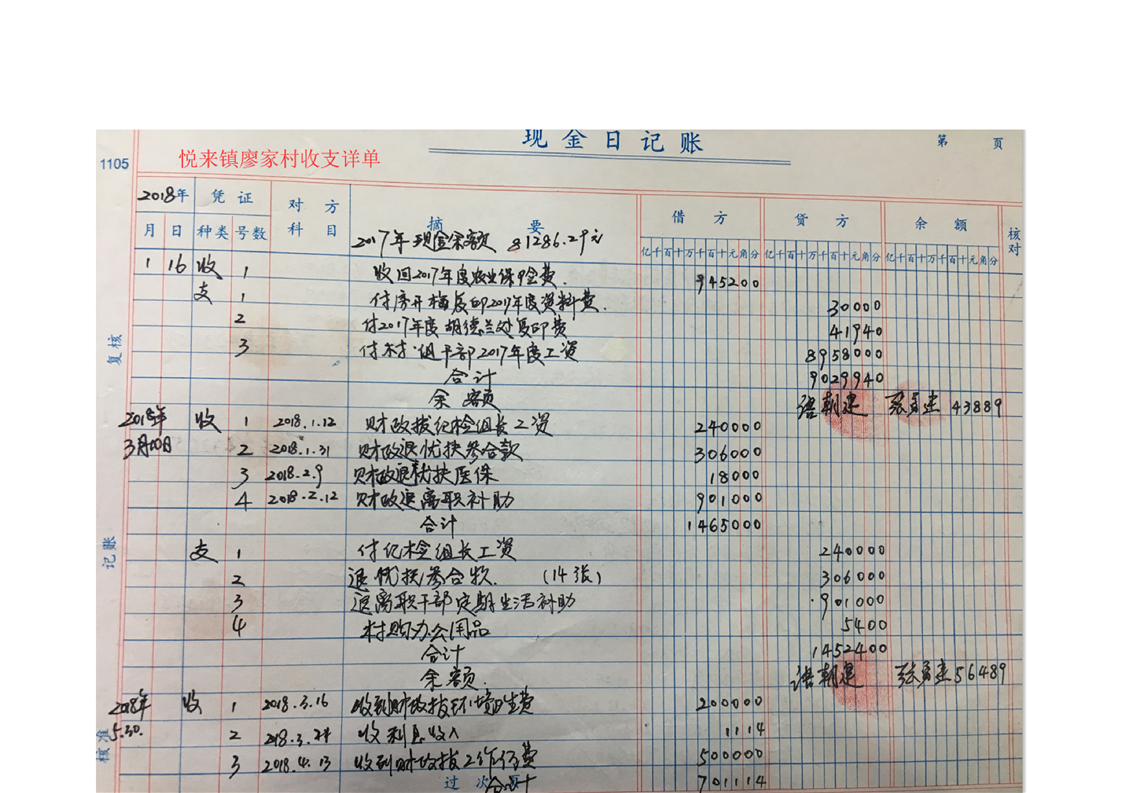 现金日记账
第 页
1105
悦来镇廖家村收支详单
2018年 凭证 对方科目 摘要 借方 贷方 余额 核对
月 日 种类 号数 亿千百十万千百十元角分 亿千百十万千百十元角分 亿千百十万千百十元角分
2017年现金余额 81286.29元
1 16 收 1 收回2017年度农业保险费 945200
支 1 付 复印2017年度资料费 30000
2 付2017年度胡德兰处复印费 41940
3 付村组干部2017年度工资 8958000
合计 9029940
余额 43889
2018年 收 1 2018.1.12 财政拨纪检组长工资 240000
3月 日 2 2018.1.31 财政退优扶参合款 306000
3 2018.2.9 财政退优扶医保 18000
4 2018.2.12 财政退离职补助 901000
合计 1465000
支 1 付纪检组长工资 240000
2 退优扶参合款 (14张) 306000
3 退离职干部定期生活补助 901000
4 村购办公用品 5400
合计 1452400
余额 56489
2018年 收 1 2018.3.16 收到财政拨环境卫生费 200000
5.30. 2 218.3.21 收利息收入 1114
3 2018.4.13 收到财政拨工作经费 500000
过次页
合计 701114
复核
记账
核准